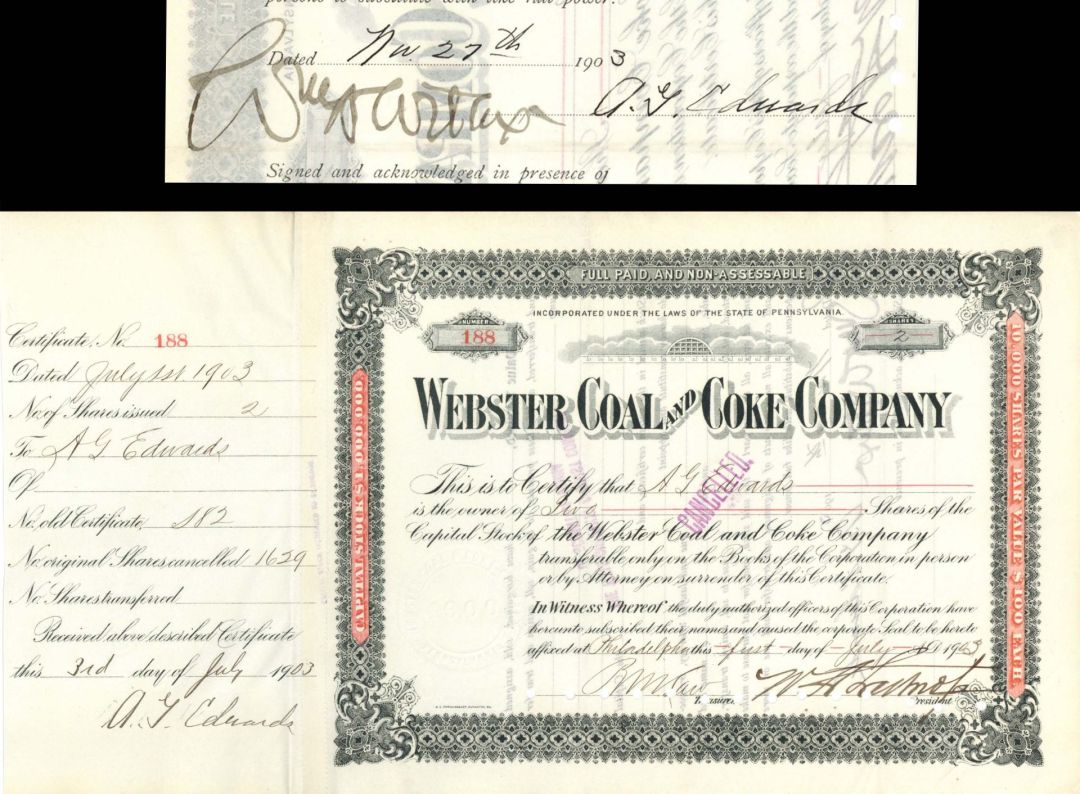 persons to substitute with like full power.
Dated Nov. 27th 1903
A. G. Edwards
Signed and acknowledged in presence of
Certificate No. 188
Dated July 1st 1903
No. of Shares issued 2
To A G Edwards
Of
No. old Certificate 182
No. original Shares cancelled 1629
No. Shares transferred
Received above described Certificate
this 3rd day of July 1903
A. G. Edwards
FULL PAID AND NON-ASSESSABLE
INCORPORATED UNDER THE LAWS OF THE STATE OF PENNSYLVANIA
NUMBER
188
SHARES
2
WEBSTER COAL AND COKE COMPANY
CAPITAL STOCK $1,000,000
10,000 SHARES PAR VALUE $100 EACH
This is to Certify that A G Edwards
is the owner of Two Shares of the
Capital Stock of the Webster Coal and Coke Company
transferable only on the Books of the Corporation in person
or by Attorney on surrender of this Certificate.
CANCELLED.
In Witness Whereof the duly authorized officers of this Corporation have
hereunto subscribed their names and caused the corporate Seal to be hereto
affixed at Philadelphia this first day of July A.D. 1903
Treasurer. President